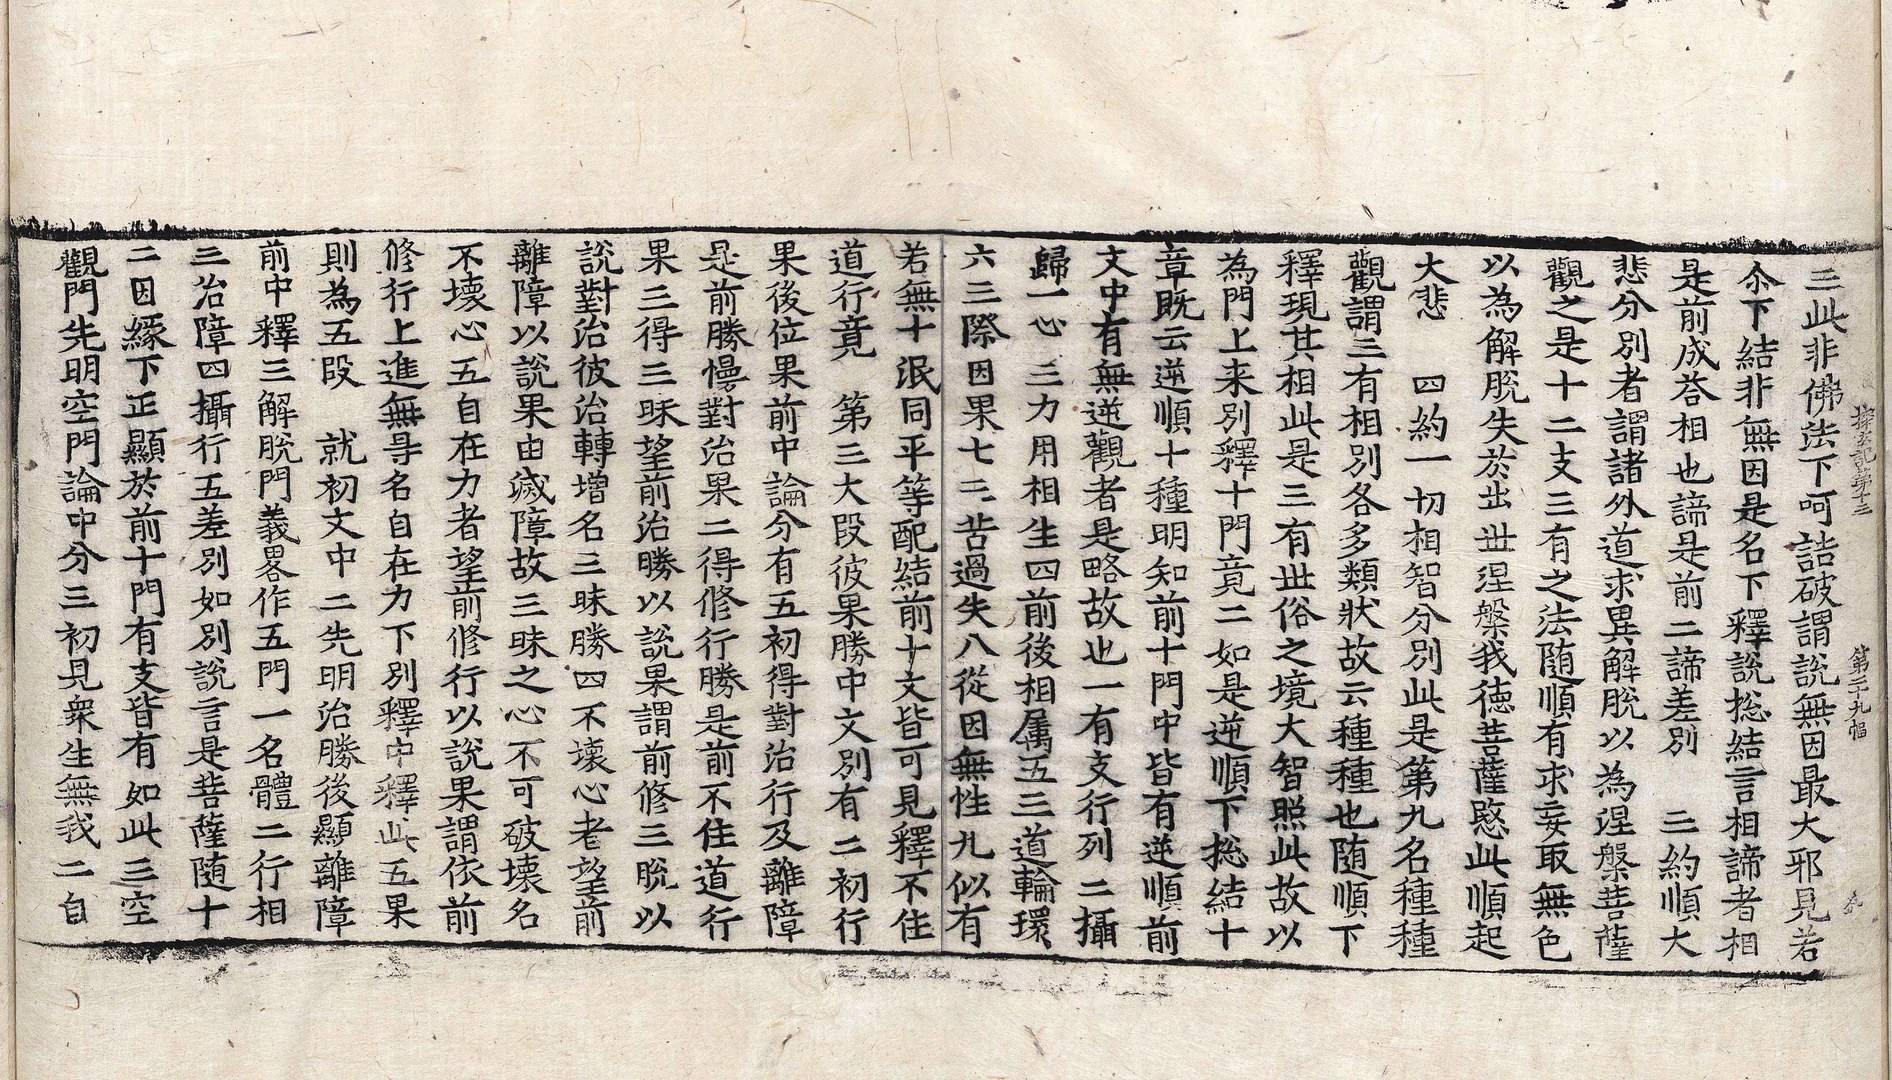 探玄記第十三　第二十九幅
三此非佛法下呵詰破謂說無因最大邪見若
尒下結非無因是名下釋說捴結言相諦者相
是前成荅相也諦是前二諦差別　三約順大
悲分別者謂諸外道求異解脫以為涅槃菩薩
觀之是十二支三有之法随順有求妄取無色
以為解脫失於出世涅槃我德菩薩愍此順起
大悲　四約一切相智分別此是第九名種種
觀謂三有相別各多類狀故云種種也随順下
釋現其相此是三有世俗之境大智照此故以
為門上来別釋十門竟二如是逆順下捴結十
章既云逆順十種明知前十門中皆有逆順前
文中有無逆觀者是略故也一有支行列二攝
歸一心三力用相生四前後相属五三道輪環
六三際因果七三苦過失八從因無性九似有
若無十泯同平等配結前十文皆可見釋不住
道行竟　第三大段彼果勝中文別有二初行
果後位果前中論分有五初得對治行及離障
是前勝慢對治果二得修行勝是前不住道行
果三得三昧望前治勝以說果謂前修三脫以
說對治彼治轉增名三昧勝四不壊心者望前
離障以說果由滅障故三昧之心不可破壊名
不壊心五自在力者望前修行以說果謂依前
修行上進無㝵名自在力下別釋中釋此五果
則為五段　就初文中二先明治勝後顯離障
前中釋三解脫門義畧作五門一名體二行相
三治障四攝行五差別如別說言是菩薩随十
二因緣下正顯於前十門有支皆有如此三空
觀門先明空門論中分三初見衆生無我二自